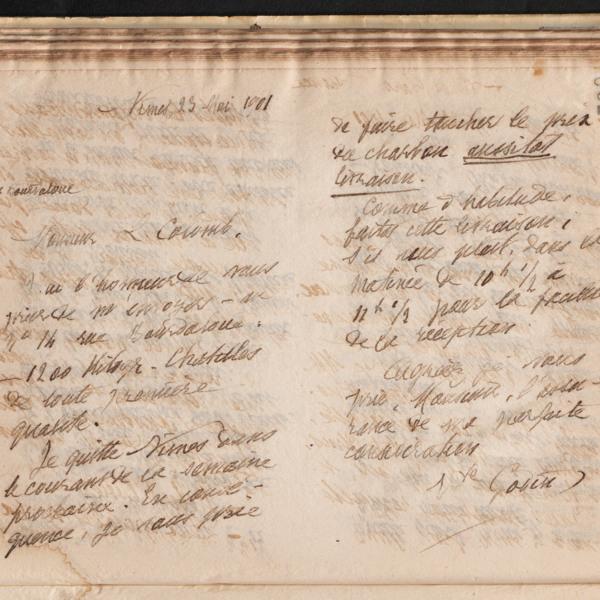 Nimes, 23 Mai 1901
Monsieur L. Coumb,
J'ai l'honneur de vous
prier de m'envoyer - au
n° 14 rue Bourdaloue:
- 1200 Kilogr. Chatilles
de toute première
qualité.
Je quitte Nîmes dans
le courant de la semaine
prochaine. En consé-
quence, je vous prie
de faire toucher le prix
du charbon aussitôt
livraison.
Comme d'habitude,
faites cette livraison,
s'il vous plait, dans la
matinée de 10h 1/2 à
11h 1/2 pour la facilité
de la réception.
Agréez je vous
prie, Monsieur, l'assu-
rance de ma parfaite
considération
Gouin